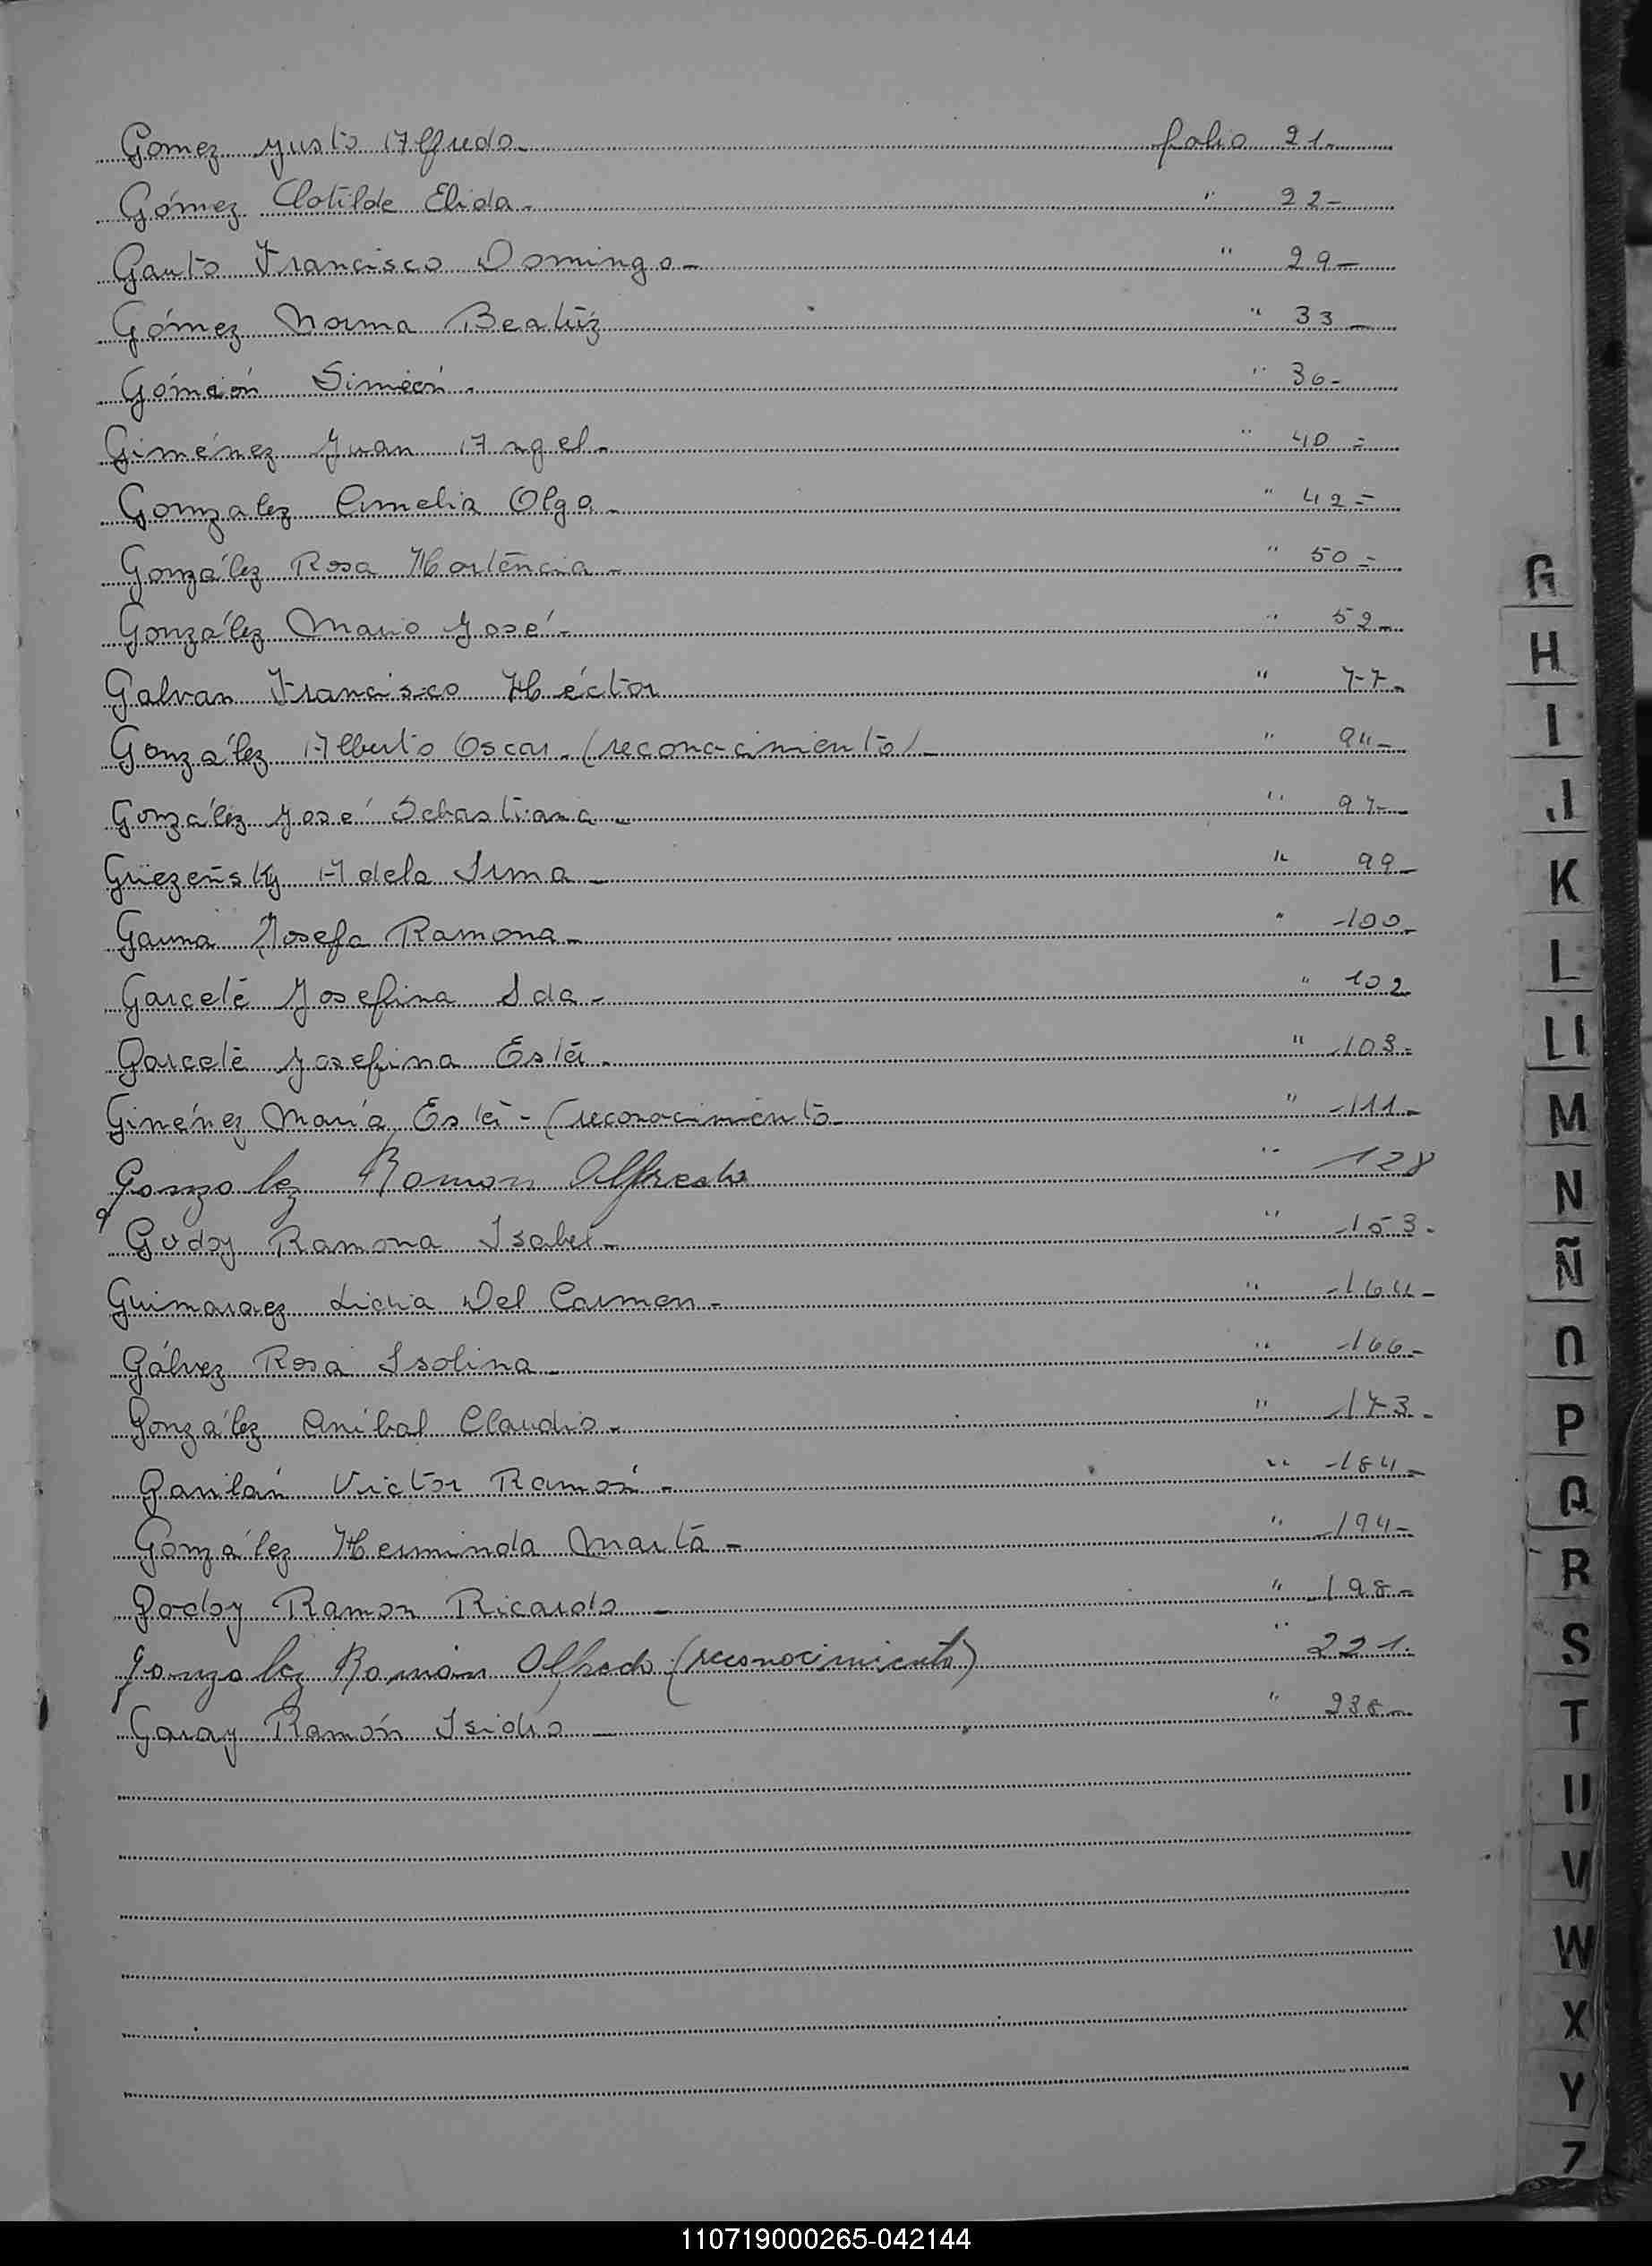 Gomez Justo Alfredo - folio 21 -
Gómez Clotilde Elida - " 22 -
Gauto Francisco Domingo - " 29 -
Gómez Norma Beatriz " 33 -
Simeón - " 36 -
Giménez Juan Angel - " 40 =
Gonzalez Amelia Olga - " 42 =
González Rosa Hortencia - " 50 =
González Mario José - " 52 -
Galvan Francisco Héctor " 77 -
González Alberto Oscar - (reconocimiento) - " 94 -
González José Sebastiana - " 97 -
Adela Irma - " 99 -
Gauna Josefa Ramona - " 100 -
Garcete Josefina Ida - " 102
Garcete Josefina Ester - " 103 -
Giménez María Ester - (reconocimiento - " 111 -
Gonzalez Ramon Alfredo " 128
Godoy Ramona Isabel - " 153 -
Guimaraez Lidia Del Carmen - " 164 -
Gálvez Rosa Isolina - " 166 -
González Aníbal Claudio - " 173 -
Victor Ramón - " 184 -
González Herminda Marta - " 194 -
Godoy Ramon Ricardo - " 198 -
Gonzalez Ramón Alfredo (reconocimiento) " 221.
Garay Ramón Isidro - " 238 -
G
H
I
J
K
L
Ll
M
N
Ñ
O
P
Q
R
S
T
U
V
W
X
Y
Z
110719000265-042144